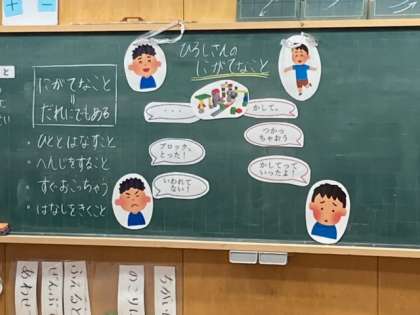 ひろしさんの
にがてなこと
にがてなこと
||
だれにでもある
・ひととはなすこと
・へんじをすること
・すぐおこっちゃう
・はなしをきくこと
・・・
かして。
つかっ
ちゃおう
ブロック、
とった!
かしてって
いったよ!
いわれて
ない!
と